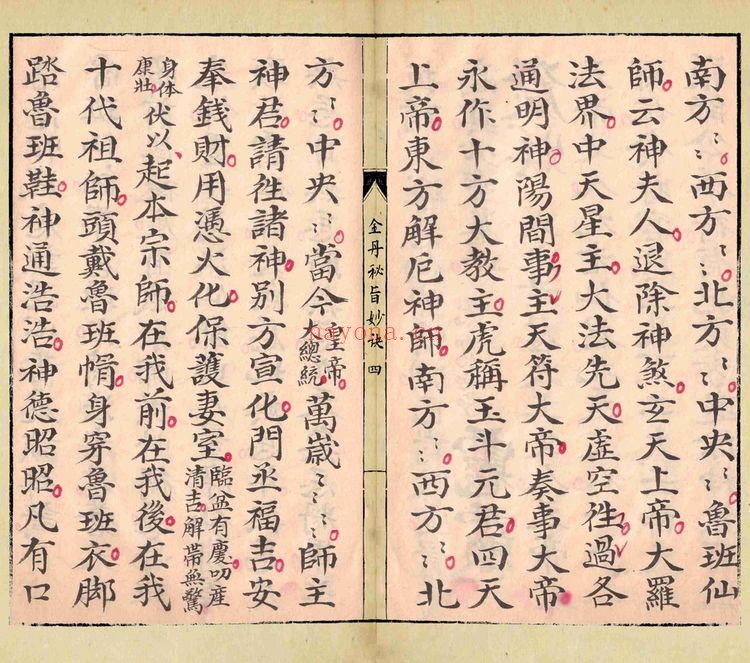 南方〻〻西方〻〻北方〻〻中央〻〻魯班仙
師云神夫人退除神煞玄天上帝大羅
法界中天星主大法先天虛空徃過各
通明神陽間事主天符大帝奏事大帝
永作十方大教主虎稱玉斗元君四天
上帝東方解厄神師南方〻〻西方〻〻北
全丹秘旨妙訣 四
方〻〻中央〻〻當今皇帝大總統萬歲〻〻〻師主
神君請徃諸神別方宣化門丞福吉安
奉錢財用憑火化保護妻室臨盆有慶叨產清吉解帶無驚
身体康壯伏以起本宗師在我前在我後在我
十代祖師頭戴魯班帽身穿魯班衣脚
踏魯班鞋神通浩浩神德昭昭凡有口
hayona.cn